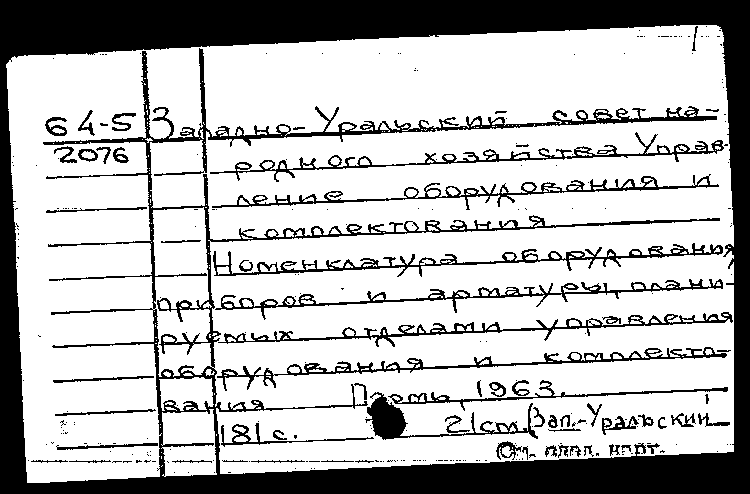 64-5 Западно-Уральский совет на-
2076 родного хозяйства Управ-
ление оборудования и
комплектования
Номенклатура оборудования,
приборов и арматуры, плани-
руемых отделами управления
оборудования и комплекто-
вания Пермь, 1963.
181 с. 21 см. (Зап.-Уральский
См. след. карт.